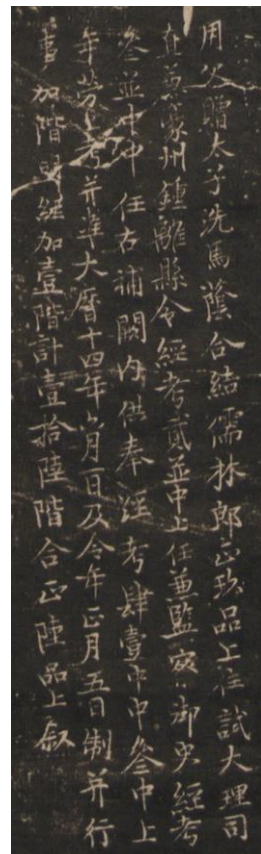 用父贈太子洗馬蔭合結儒林郎正玖品上任試大理司
直兼濠州鍾離縣令經考貳並中上任兼監察御史經考
叄並中中任右補闕內供奉經考肆壹中中叄中上
年勞考并準大曆十四年六月一日及今年正月五日制并行
事加階加壹階計壹拾陸階合正陸品上叙